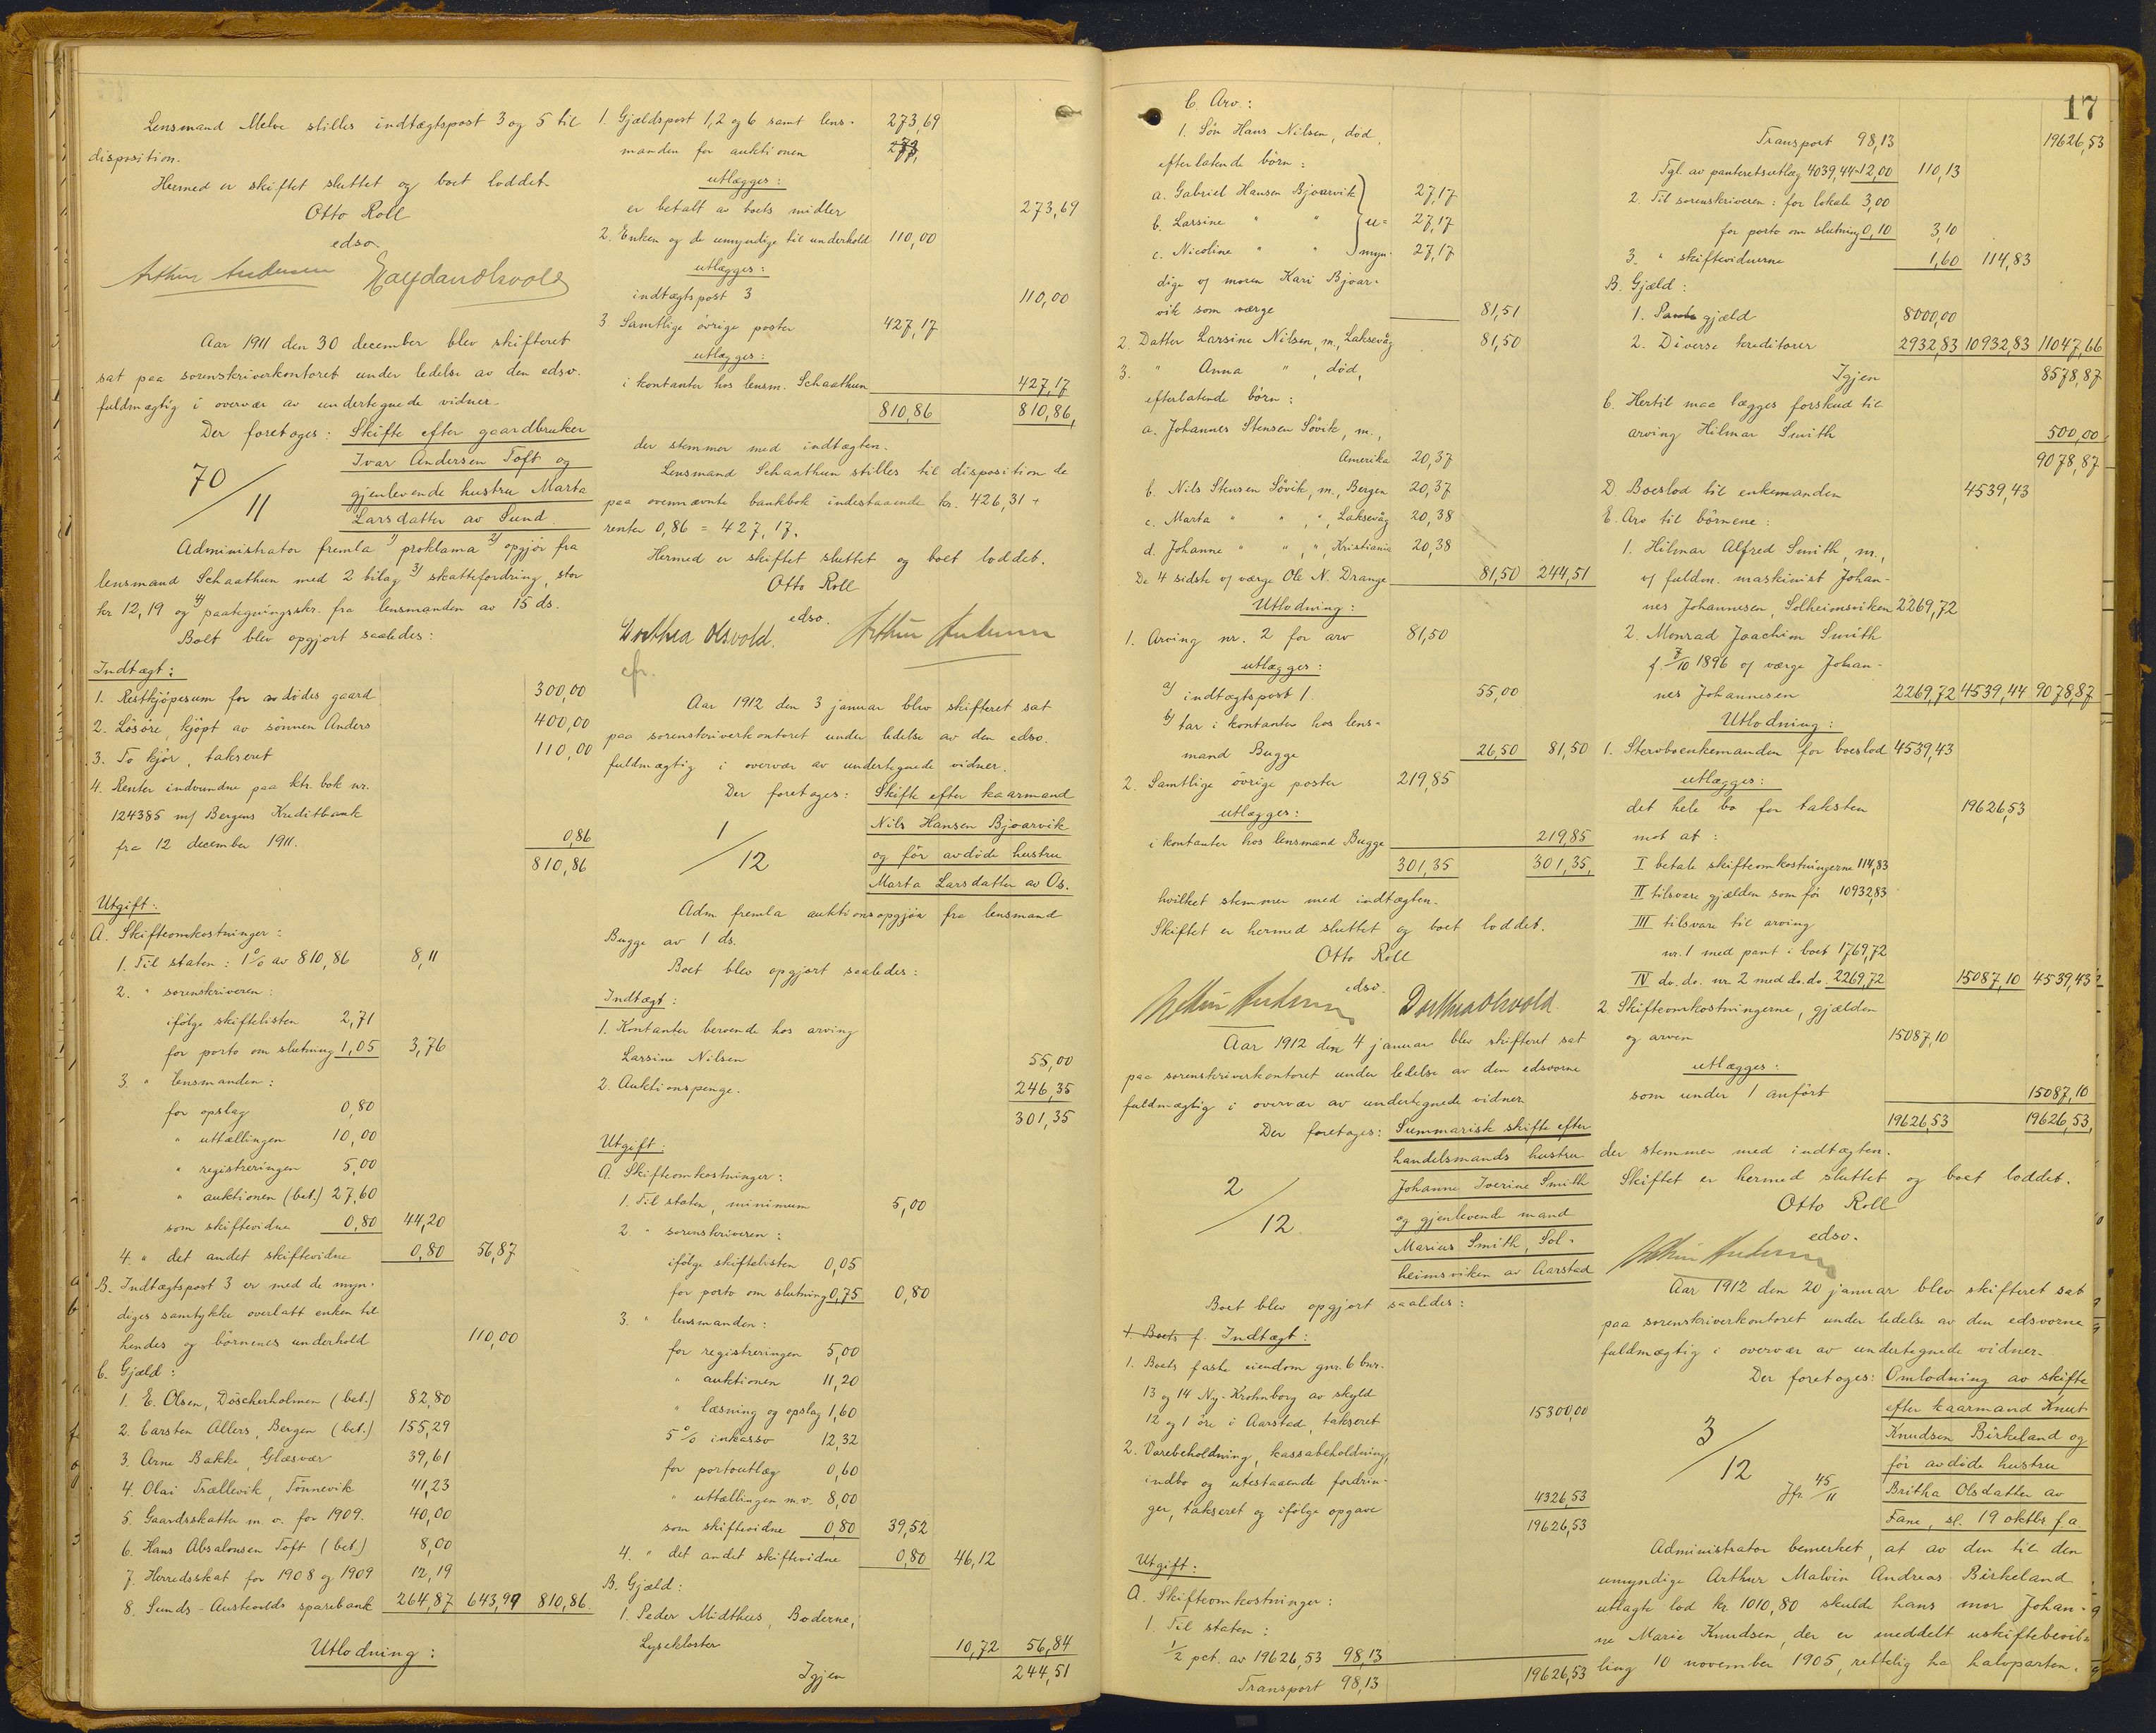 Lensmand Melve stilles indtægtspost 3 og 5 til
disposition.
Hermed er skiftet sluttet og boet loddet.
Otto Roll
edsv.
Arthur Andersen Halfdan Olsvold
Aar 1911 den 30 december blev skifteret
sat paa sorenskriverkontoret under ledelse av den edsv.
fuldmægtig i overvær av undertegnede vidner.
Der foretoges: Skifte efter gaardbruker
70/11 Ivar Andersen Toft og
gjenlevende hustru Marta
Larsdatter av Sund
Administrator fremla 1) proklama 2) opgjør fra
lensmand Schaathun med 2 bilag 3) skattefordring, stor
kr 12,19 og 4) paategningsskr. fra lensmanden av 15 ds.
Boet blev opgjort saaledes:
Indtægt:
1. Restkjøpesum for avdødes gaard 300,00
2. Løsøre, kjøpt av sønnen Anders 400,00
3. To kjør, takseret 110,00
4. Renter indvundne paa ktr. bok nr.
124385 m/ Bergens Kreditbank
fra 12 december 1911. 0,86
810,86
Utgift:
A. Skifteomkostninger:
1. Til staten: 1% av 810,86 8,11
2. " sorenskriveren:
ifølge skiftelisten 2,71
for porto om slutning 1,05 3,76
3. " lensmanden:
for opslag 0,80
" uttællingen 10,00
" registreringen 5,00
" auktionen (bet.) 27,60
som skiftevidne 0,80 44,20
4. " det andet skiftevidne 0,80 56,87
B. Indtægtspost 3 er med de myn-
diges samtykke overlatt enken til
hendes og børnenes underhold 110,00
C. Gjæld:
1. E. Olsen, Døscherholmen (bet.) 82,80
2. Carsten Allers, Bergen (bet.) 155,29
3. Arne Bakke, Glæsvær 39,61
4. Olai Trællevik, Tønnevik 41,23
5. Gaardsskatter m. v. for 1909. 40,00
6. Hans Absalonsen Toft (bet.) 8,00
7. Herredsskat for 1908 og 1909 12,19
8. Sunds-Austevolds sparebank 264,87 643,99 810,86.
Utlodning:
1. Gjældspost 1, 2 og 6 samt lens- 273,69
manden for auktionen 273,
utlægges:
er betalt av boets midler 273,69
2. Enken og de umyndige til underhold 110,00
utlægges:
indtægtspost 3 110,00
3. Samtlige øvrige poster 427,17
utlægges:
i kontanter hos lensm. Schaathun 427,17
810,86 810,86,
der stemmer med indtægten.
Lensmand Schaathun stilles til disposition de
paa ovennævnte bankbok indestaaende kr. 426,31 +
renter 0,86 = 427,17.
Hermed er skiftet sluttet og boet loddet.
Otto Roll
edsv.
Dorthea Olsvold. Arthur Andersen
cfr.
Aar 1912 den 3 januar blev skifteret sat
paa sorenskriverkontoret under ledelse av den edsv.
fuldmægtig i overvær av undertegnede vidner.
Der foretoges: Skifte efter kaarmand
1/12 Nils Hansen Bjoarvik
og før avdøde hustru
Marta Larsdatter av Os.
Adm. fremla auktionsopgjør fra lensmand
Bugge av 1 ds.
Boet blev opgjort saaledes:
Indtægt:
1. Kontanter beroende hos arving
Larsine Nilsen 55,00
2. Auktionspenge. 246,35
301,35
Utgift:
A. Skifteomkostninger:
1. Til staten, minimum 5,00
2. " sorenskriveren:
ifølge skiftelisten 0,05
for porto om slutning 0,75 0,80
3. " lensmanden:
for registreringen 5,00
" auktionen 11,20
" læsning og opslag 1,60
5% inkasso 12,32
for portoutlæg 0,60
" uttællingen m.v. 8,00
som skiftevidne 0,80 39,52
4. " det andet skiftevidne 0,80 46,12
B. Gjæld:
1. Peder Midthus, Boderne,
Lysekloster 10,72 56,84
Igjen 244,51
C. Arv:
1. Søn Hans Nilsen, død,
efterlatende børn:
a. Gabriel Hansen Bjoarvik 27,17
b. Larsine " " u- 27,17
c. Nicoline " " myn- 27,17
dige v/ moren Kari Bjoar-
vik som værge 81,51
2. Datter Larsine Nilsen, m., Laksevåg 81,50
3. " Anna " , død,
efterlatende børn:
a. Johannes Stensen Søvik, m.,
Amerika 20,37
b. Nils Stensen Søvik, m., Bergen 20,37
c. Marta " " , " , Laksevåg 20,38
d. Johanne " " , " , Kristiania 20,38
De 4 sidste v/ værge Ole N. Drange 81,50 244,51
Utlodning:
1. Arving nr. 2 for arv 81,50
utlægges:
a) indtægtspost 1. 55,00
b) tar i kontanter hos lens-
mand Bugge 26,50 81,50
2. Samtlige øvrige poster 219,85
utlægges:
i kontanter hos lensmand Bugge 219,85
301,35 301,35,
hvilket stemmer med indtægten.
Skiftet er hermed sluttet og boet loddet.
Otto Roll
edsv.
Arthur Andersen Dorthea Olsvold.
Aar 1912 den 4 januar blev skifteret sat
paa sorenskriverkontoret under ledelse av den edsvorne
fuldmægtig i overvær av undertegnede vidner
Der foretoges: Summarisk skifte efter
handelsmands hustru
2/12 Johanne Iverine Smith
og gjenlevende mand
Marius Smith, Sol-
heimsviken av Aarstad
Boet blev opgjort saaledes:
1. Boets f. Indtægt:
1. Boets faste eiendom gnr. 6 bnr.
13 og 14 Ny-Krohnborg av skyld
12 og 1 øre i Aarstad, takseret 15300,00
2. Varebeholdning, kassabeholdning,
indbo og utestaaende fordrin-
ger, takseret og ifølge opgave 4326,53
19626,53
Utgift:
A. Skifteomkostninger:
1. Til staten:
1/2 pct. av 19626,53 98,13
Transport 98,13 19626,53
17
Transport 98,13 19626,53
Tgl. av panteretsutlæg 4039,44 12,00 110,13
2. Til sorenskriveren: for lokale 3,00
for porto om slutning 0,10 3,10
3. " skiftevidnerne 1,60 114,83
B. Gjæld:
1. Pantegjæld 8000,00
2. Diverse kreditorer 2932,83 10932,83 11047,66
Igjen 8578,87
C. Hertil maa lægges forskud til
arving Hilmar Smith 500,00
9078,87
D. Boeslod til enkemanden 4539,43
E. Arv til børnene:
1. Hilmar Alfred Smith, m.,
v/ fuldm. maskinist Johan-
nes Johannesen, Solheimsviken 2269,72
2. Monrad Joachim Smith
f. 7/10 1896 v/ værge Johan-
nes Johannesen 2269,72 4539,44 9078,87
Utlodning:
1. Stervboenkemanden for boeslod 4539,43
utlægges:
det hele bo for taksten 19626,53
mot at:
I betale skifteomkostningerne 114,83
II tilsvare gjælden som før 10932,83
III tilsvare til arving
nr. 1 med pant i boet 1769,72
IV do. do. nr. 2 med do. do. 2269,72 15087,10 4539,43
2. Skifteomkostningerne, gjælden
og arven 15087,10
utlægges:
som under 1 anført 15087,10
19626,53 19626,53,
der stemmer med indtægten.
Skiftet er hermed sluttet og boet loddet.
Otto Roll
edsv.
Arthur Andersen
Aar 1912 den 20 januar blev skifteret sat
paa sorenskriverkontoret under ledelse av den edsvorne
fuldmægtig i overvær av undertegnede vidner.
Der foretoges: Omlodning av skifte
efter kaarmand Knut
3/12 Knudsen Birkeland og
før avdøde hustru
Jfr. 45/11 Britha Olsdatter av
Fane, sl. 19 oktbr. f.a.
Administrator bemerket, at av den til den
umyndige Arthur Malvin Andreas Birkeland
utlagte lod kr. 1010,80 skulde hans mor Johan-
ne Marie Knudsen, der er meddelt uskiftebevil-
ling 10 november 1905, rettelig ha halvparten.